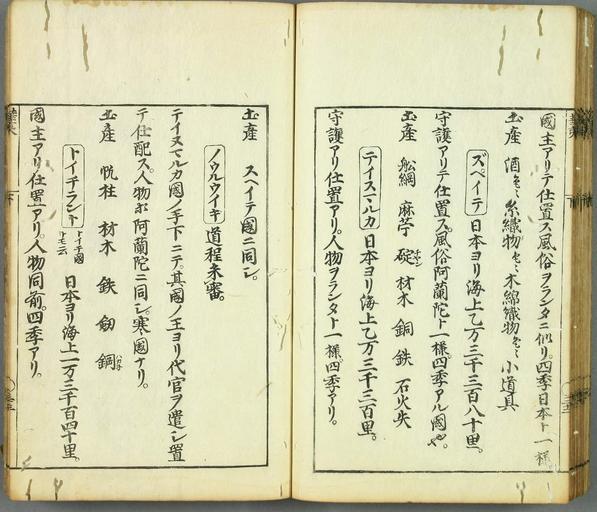 國主アリテ仕置ス風俗ヲランタニ似リ。四季日本ト一様。
土産 酒 糸織物 木綿織物 小道具
ズペイテ 日本ヨリ海上乙万三千三百八十里。
守護アリテ仕置ス。風俗阿蘭陀ト一様。四季アル國也。
土産 舩綱 麻苧 碇 材木 銅 鉄 石火矢
テイヌマルカ 日本ヨリ海上乙万三千三百里。
守護アリ仕置アリ。人物ヲランタト一様。四季アリ。
土産 スヘイテ國ニ同シ。
ノウルウイキ 道程未審。
テイヌマルカ國ノ手下ニテ。其國ノ王ヨリ代官ヲ遣シ置
テ仕配ス。人物ホ阿蘭陀ニ同シ。寒國ナリ。
土産 帆柱 材木 鉄 釼 鋼
トイチラント トイチ國トモ云 日本ヨリ海上一万三千百四十里。
國主アリ仕置アリ。人物同前。四季アリ。